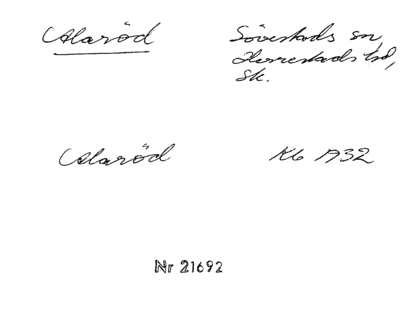 Alaröd
Sövestads sn,
Herrestads hd,
Sk.
Alaröd
Kb 1932
Nr 21692